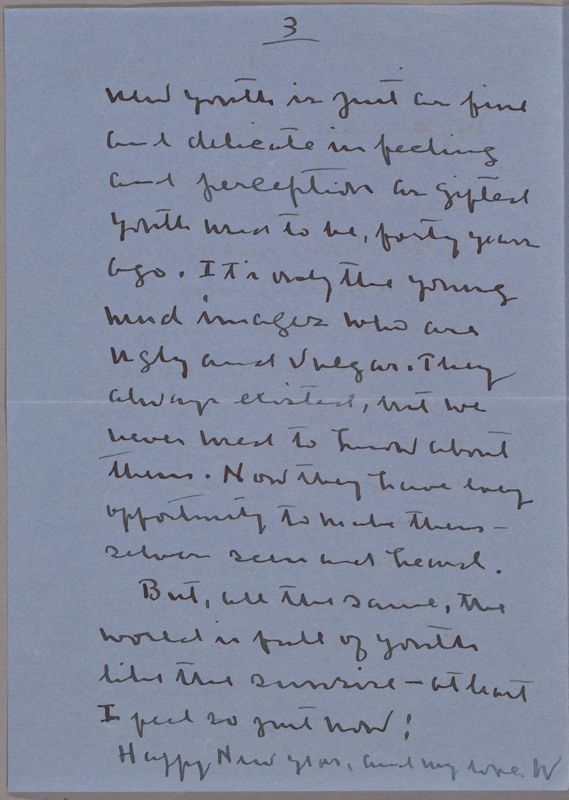 3
new youth is just as fine
and delicate in feeling
and perception as gifted
youth used to be, forty years
ago. It's only the young
mud images who are
ugly and vulgar. They
always existed, but we
never used to know about
them. Now they have every
opportunity to make them-
selves seen and heard.
But, all the same, the
world is full of youth
like the sunrise - at least
I feel so just now!
Happy New year, and my love. W